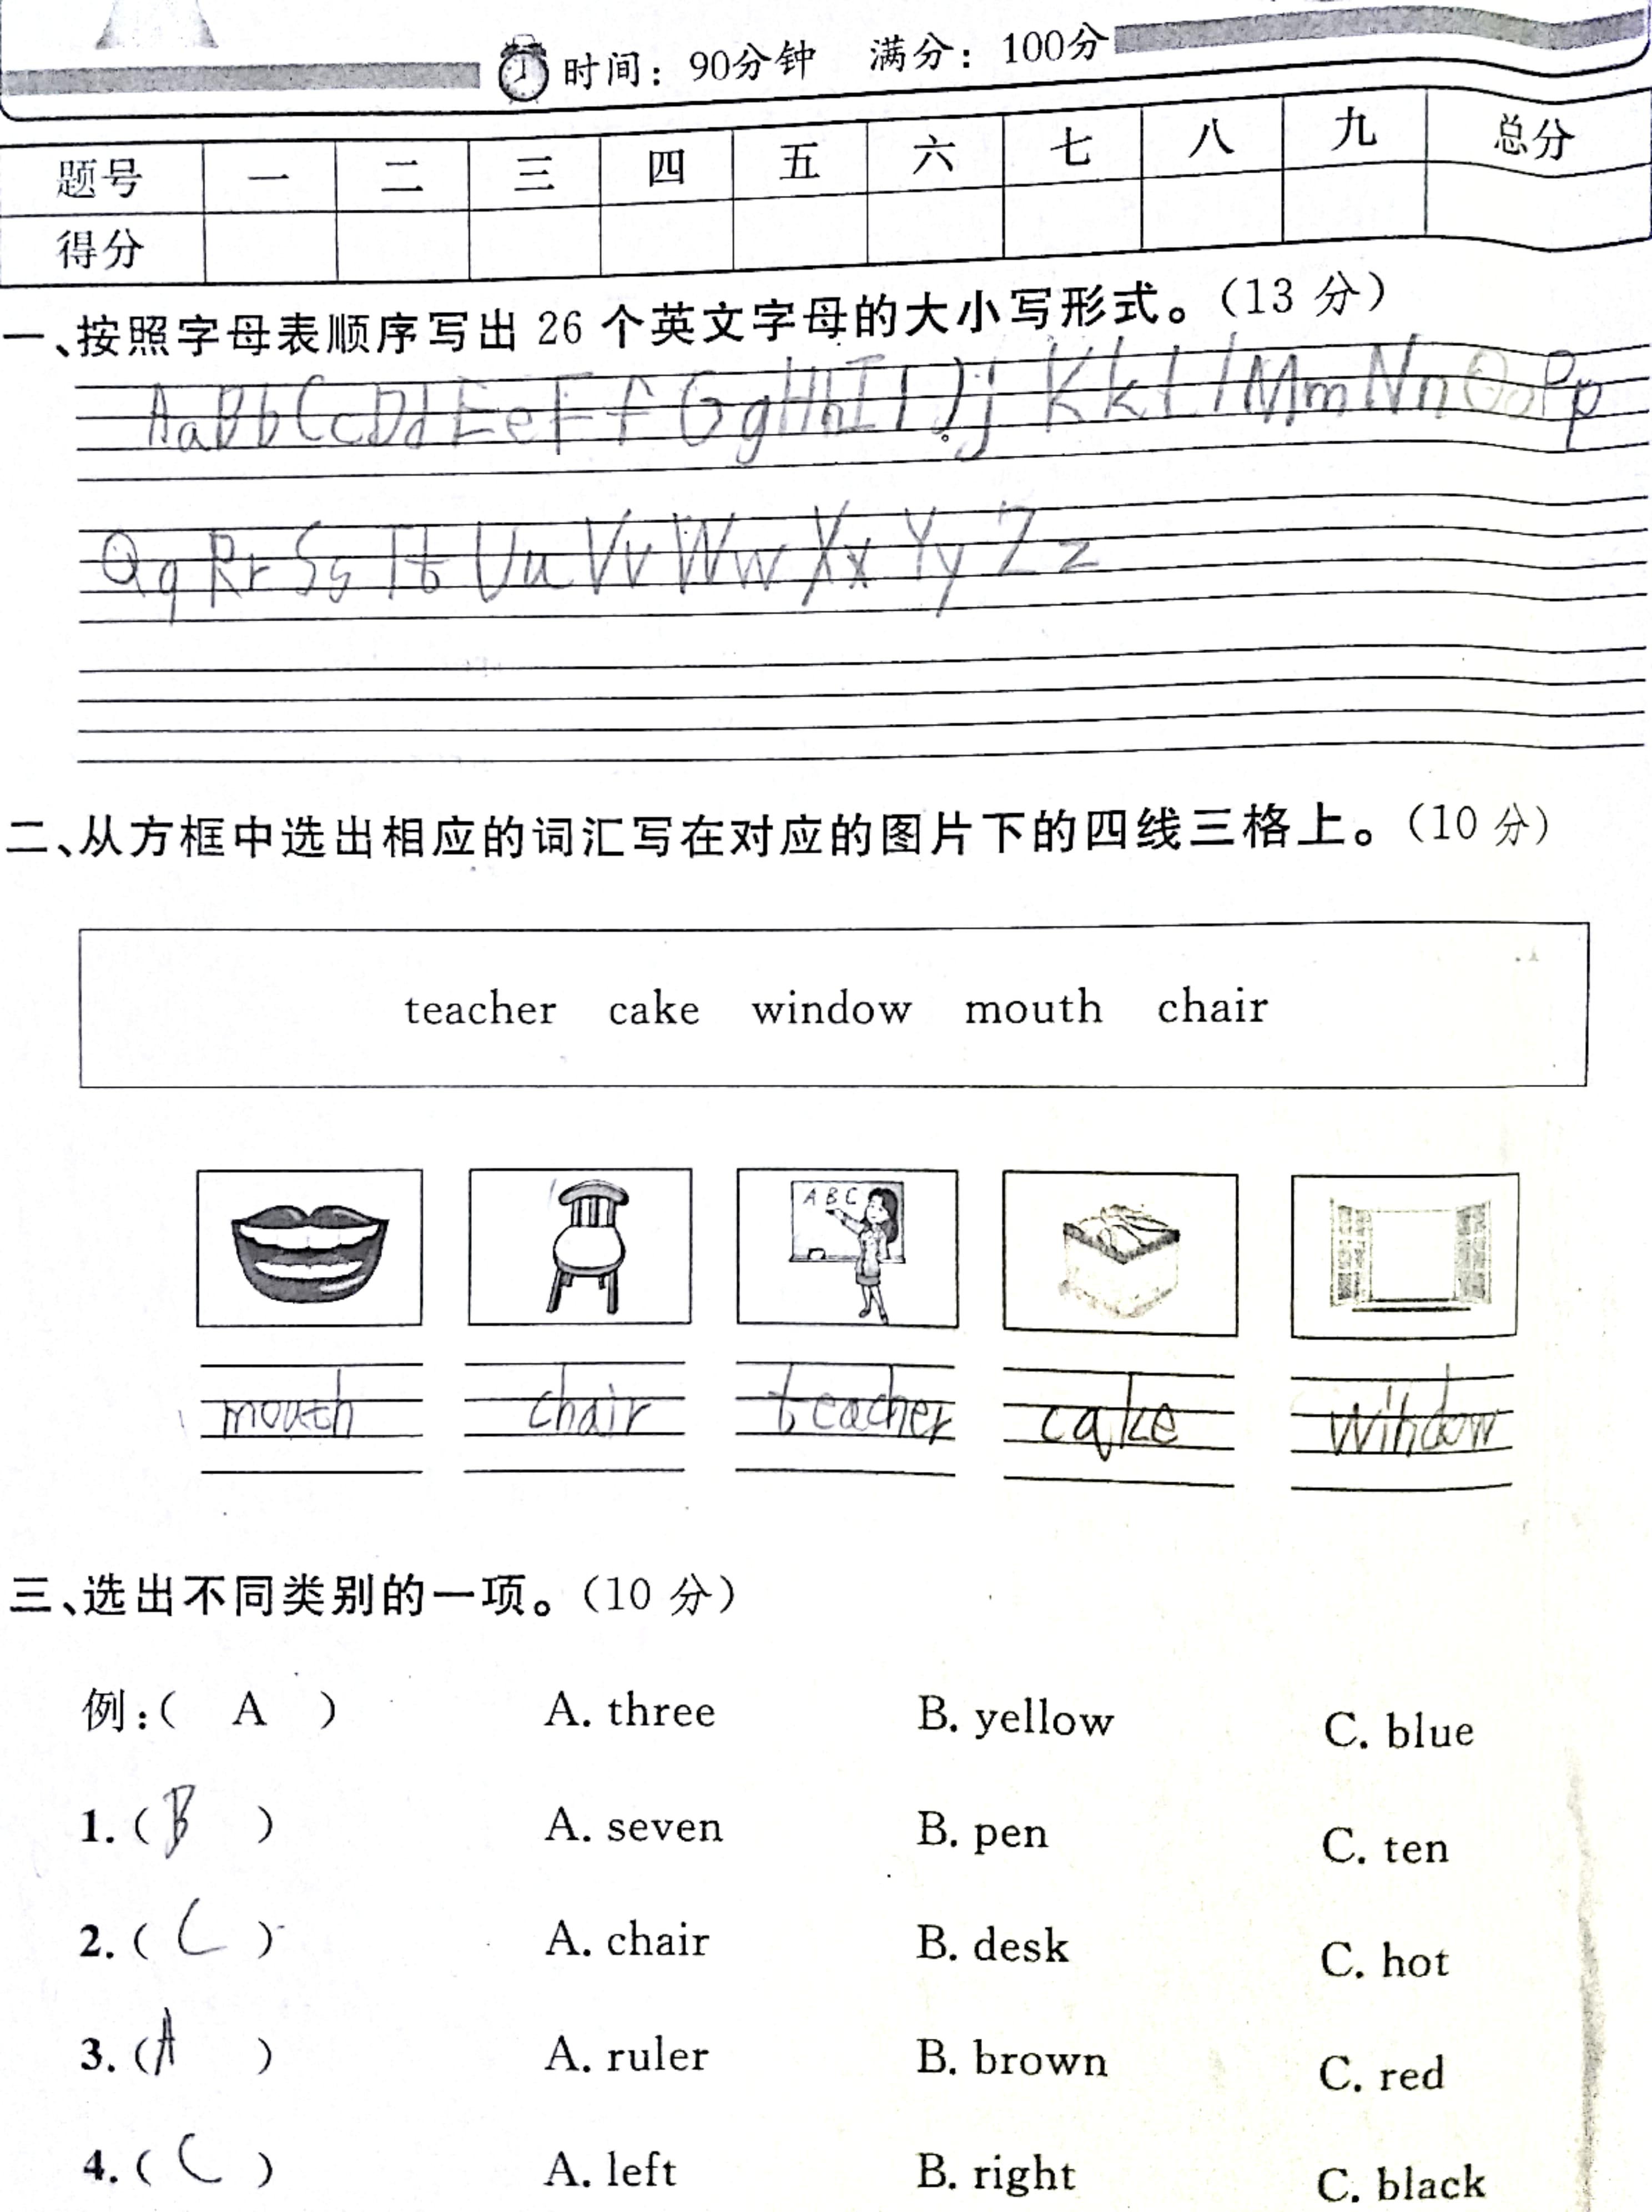 时间：90分钟 满分：100分
题号 一 二 三 四 五 六 七 八 九 总分
得分
一、按照字母表顺序写出 26 个英文字母的大小写形式。（13 分）
Aa Bb Cc Dd Ee Ff Gg Hh I l Jj Kk L l Mm Nn Oo Pp
Qq Rr Ss Tt Uu Vv Ww Xx Yy Zz
二、从方框中选出相应的词汇写在对应的图片下的四线三格上。（10 分）
teacher cake window mouth chair
A B C
mouth chair teacher cake window
三、选出不同类别的一项。（10 分）
例：（ A ） A. three B. yellow C. blue
1.（ B ） A. seven B. pen C. ten
2.（ C ） A. chair B. desk C. hot
3.（ A ） A. ruler B. brown C. red
4.（ C ） A. left B. right C. black